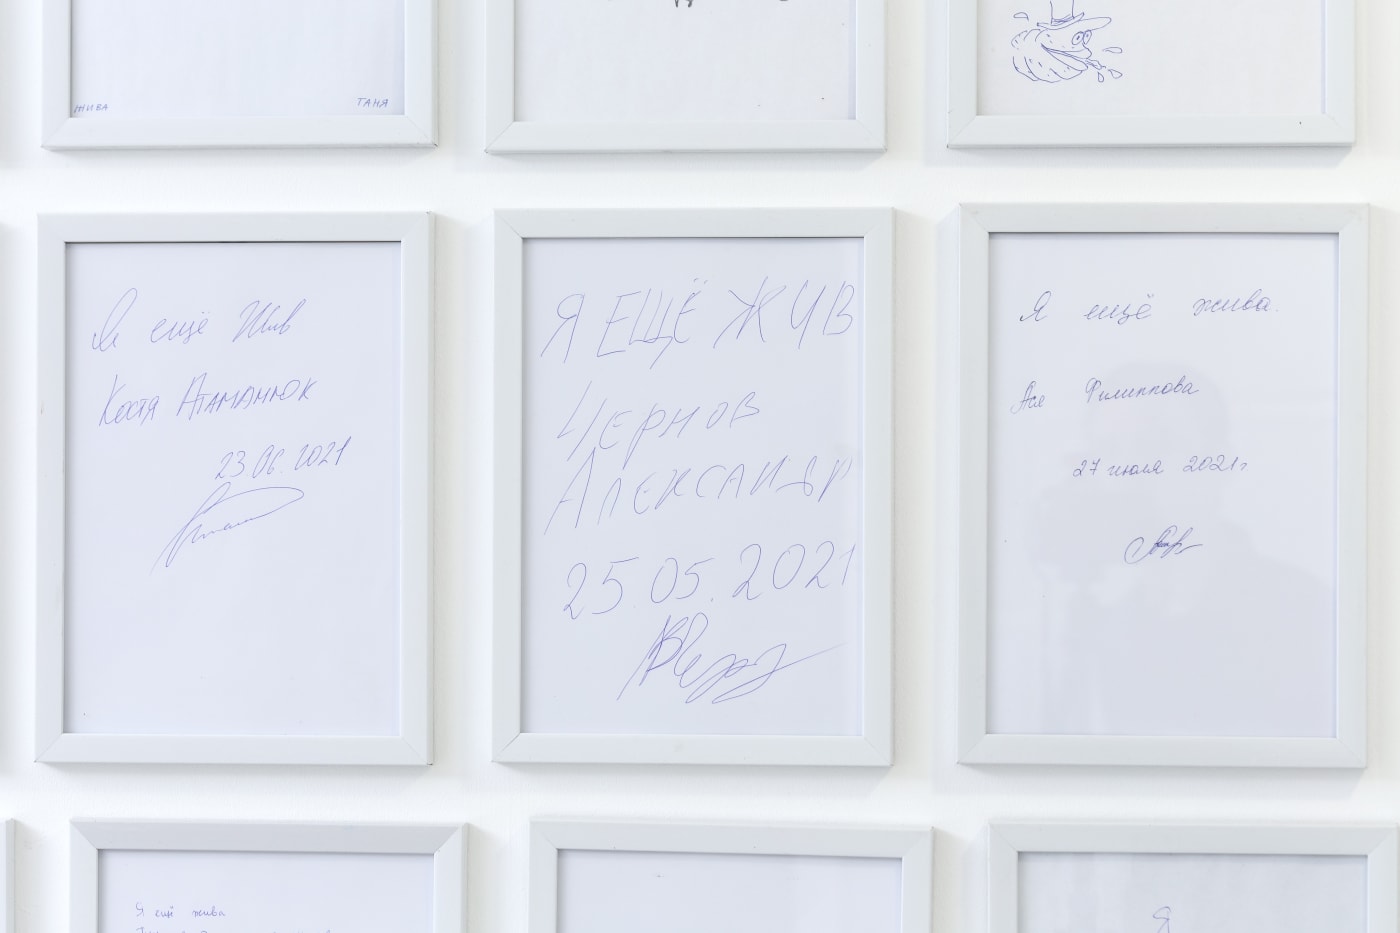 ЖИВА
ТАНЯ
Я ещё Жив
Костя Атаманюк
23.06.2021
Я ЕЩЁ ЖИВ
ЧЕРНОВ
АЛЕКСАНДР
25.05.2021
Я ещё жива.
Ася Филиппова
27 июля 2021г
Я ещё жива
Я